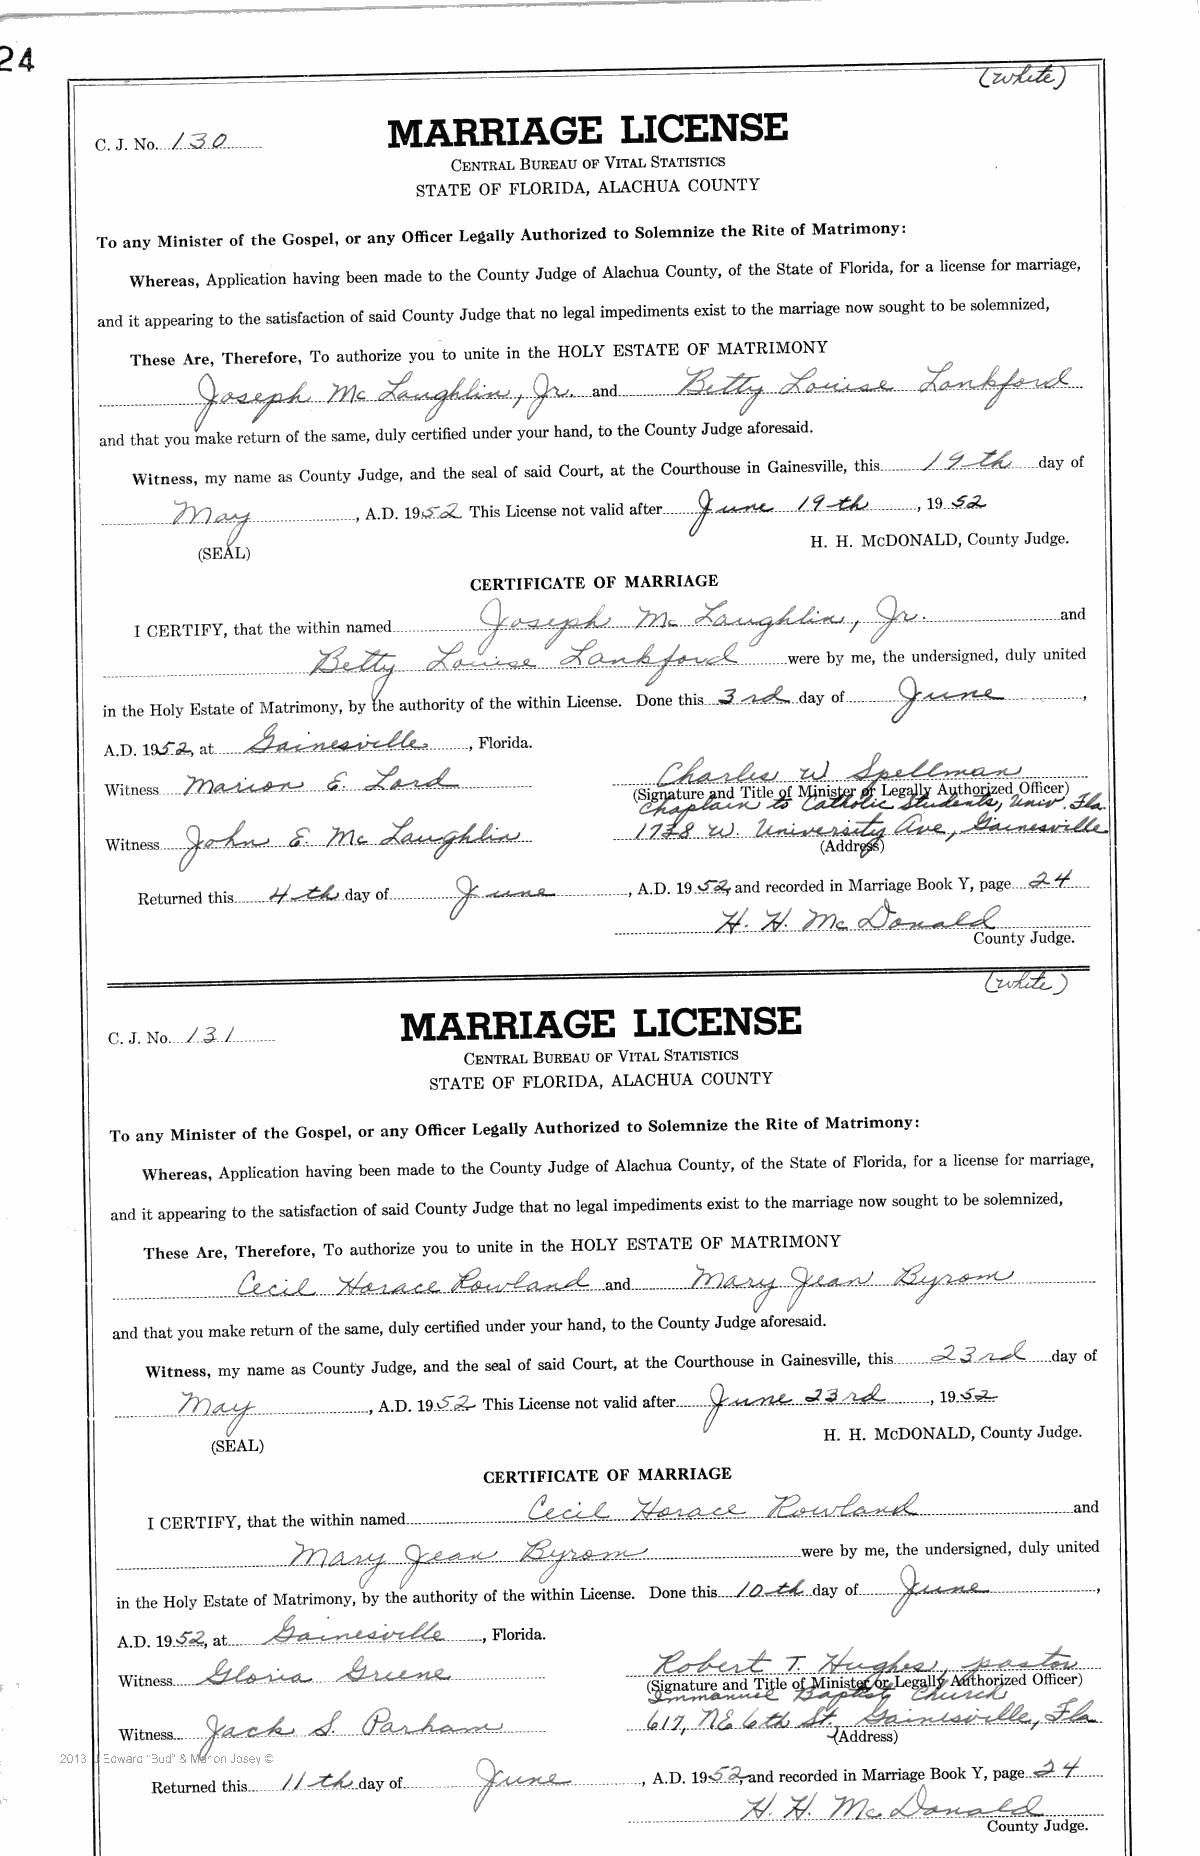 24
(White)
C. J. No. 130
MARRIAGE LICENSE
CENTRAL BUREAU OF VITAL STATISTICS
STATE OF FLORIDA, ALACHUA COUNTY
To any Minister of the Gospel, or any Officer Legally Authorized to Solemnize the Rite of Matrimony:
Whereas, Application having been made to the County Judge of Alachua County, of the State of Florida, for a license for marriage,
and it appearing to the satisfaction of said County Judge that no legal impediments exist to the marriage now sought to be solemnized,
These Are, Therefore, To authorize you to unite in the HOLY ESTATE OF MATRIMONY
Joseph McLaughlin, Jr. and Betty Louise Lankford
and that you make return of the same, duly certified under your hand, to the County Judge aforesaid.
Witness, my name as County Judge, and the seal of said Court, at the Courthouse in Gainesville, this 19th day of
May, A.D. 1952 This License not valid after June 19th, 1952
(SEAL) H. H. McDONALD, County Judge.
CERTIFICATE OF MARRIAGE
I CERTIFY, that the within named Joseph McLaughlin, Jr. and
Betty Louise Lankford were by me, the undersigned, duly united
in the Holy Estate of Matrimony, by the authority of the within License. Done this 3rd day of June,
A.D. 1952, at Gainesville, Florida.
Witness Marion E. Lord Charles W Spellman
(Signature and Title of Minister or Legally Authorized Officer)
Chaplain to Catholic Students, Univ. Fla.
Witness John E McLaughlin 1738 W. University Ave, Gainesville
(Address)
Returned this 4th day of June, A.D. 1952, and recorded in Marriage Book Y, page 24
H. H. McDonald
County Judge.
(White)
C. J. No. 131
MARRIAGE LICENSE
CENTRAL BUREAU OF VITAL STATISTICS
STATE OF FLORIDA, ALACHUA COUNTY
To any Minister of the Gospel, or any Officer Legally Authorized to Solemnize the Rite of Matrimony:
Whereas, Application having been made to the County Judge of Alachua County, of the State of Florida, for a license for marriage,
and it appearing to the satisfaction of said County Judge that no legal impediments exist to the marriage now sought to be solemnized,
These Are, Therefore, To authorize you to unite in the HOLY ESTATE OF MATRIMONY
Cecil Horace Rowland and Mary Jean Byrom
and that you make return of the same, duly certified under your hand, to the County Judge aforesaid.
Witness, my name as County Judge, and the seal of said Court, at the Courthouse in Gainesville, this 23rd day of
May, A.D. 1952 This License not valid after June 23rd, 1952
(SEAL) H. H. McDONALD, County Judge.
CERTIFICATE OF MARRIAGE
I CERTIFY, that the within named Cecil Horace Rowland and
Mary Jean Byrom were by me, the undersigned, duly united
in the Holy Estate of Matrimony, by the authority of the within License. Done this 10th day of June,
A.D. 1952, at Gainesville, Florida.
Witness Gloria Greene Robert T. Hughes, pastor
(Signature and Title of Minister or Legally Authorized Officer)
Immanuel Baptist Church
Witness Jack S. Parham 617, NE 6th St. Gainesville, Fla
(Address)
2013 J Edward "Bud" & Marion Josey ©
Returned this 11th day of June, A.D. 1952, and recorded in Marriage Book Y, page 24
H. H. McDonald
County Judge.